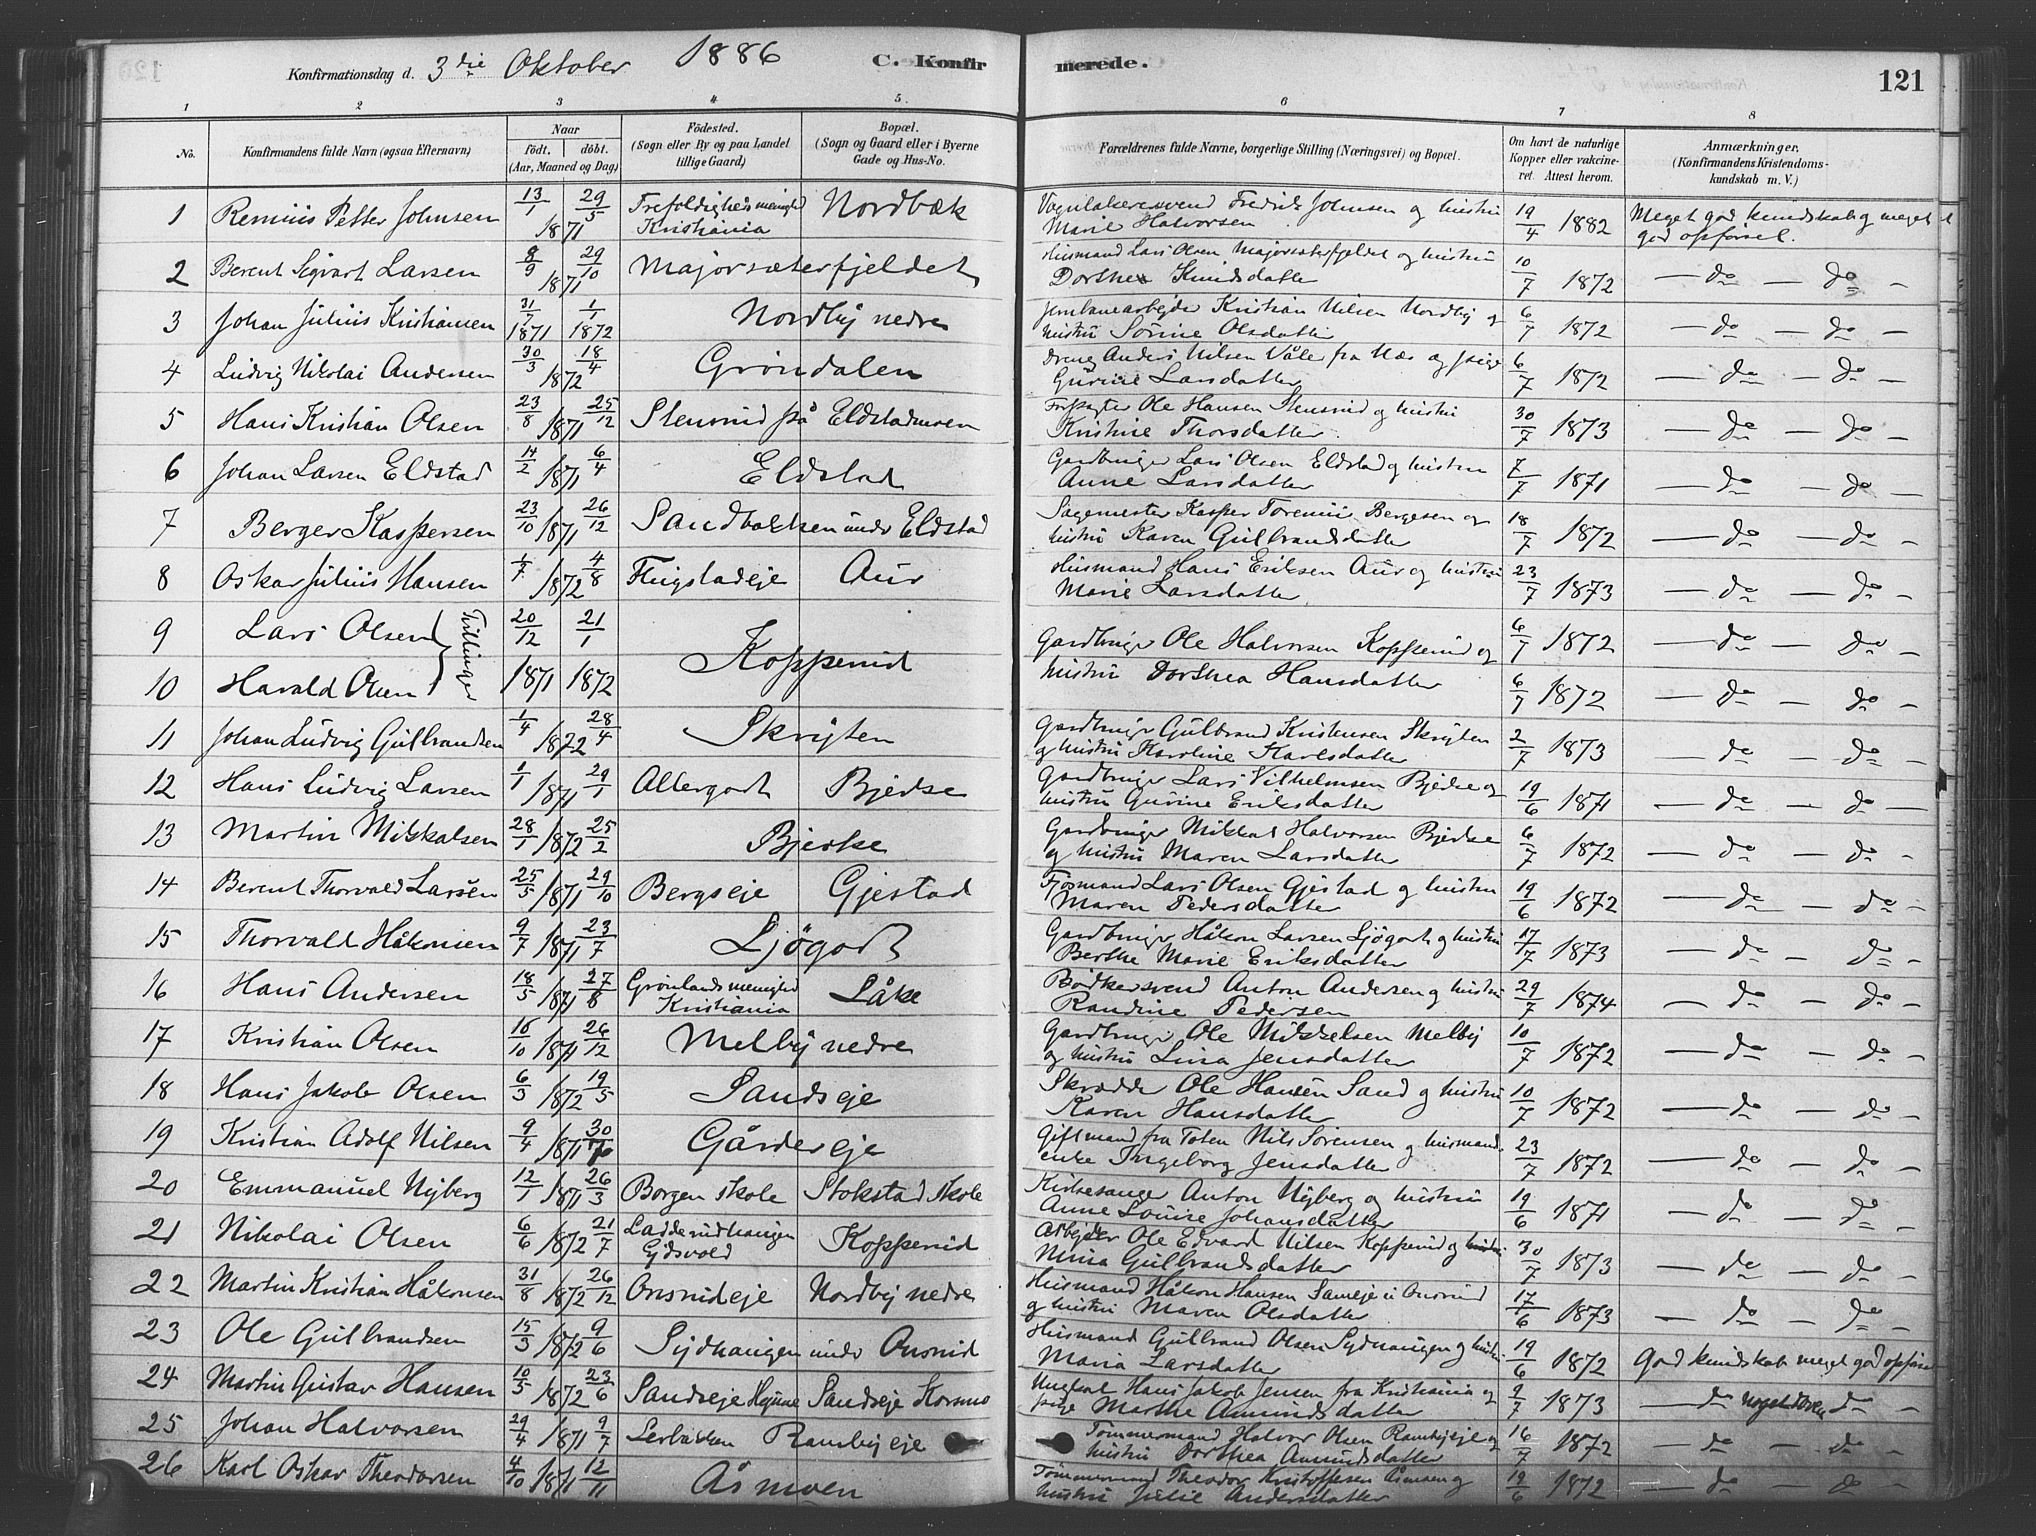 Konfirmationsdag d. 3die Oktober 1886 C. Konfirmerede. 121
1 2 3 4 5. 6 7 8
No. Konfirmandens fulde Navn (ogsaa Efternavn) Naar født. døbt. (Aar, Maaned og Dag) Födested. (Sogn eller By og paa Landet tillige Gaard) Bopæl. (Sogn og Gaard eller i Byerne Gade og Hus-No. Forældrenes fulde Navne, borgerlige Stilling (Næringsvei) og Bopæl. Om havt de naturlige Kopper eller vaccineret. Attest herom. Anmærkninger. (Konfirmandens Kristendomskundskab m. V.)
1 Petter Johnsen 13/1 29/5 1871 Trefoldigheds menighed Kristiania Nordbæk Fredrik Johnsen og hustru Marie Halvorsen 19/4 1882 Meget god kundskab og meget god opførsel.
2 Berent Sigvart Larsen 8/9 29/10 1871 Majorsæterfjeldet Husmand Lars Olsen Majorsæterfjeldet og hustru Dorthea Knudsdatter 10/7 1872 — do — do —
3 Johan Julius Kristiansen 31/7 1871 1/1 1872 Nordby nedre Jernbanearbejder Kristian Nilsen Nordby og hustru Sørine Olsdatter 6/7 1872 — do — do —
4 Ludvig Nikolai Andersen 30/3 18/4 1872 Grøndalen Dreng Anders Nilsen Våler fra Næs og pige Gurine Larsdatter 6/7 1872 — do — do —
5 Hans Kristian Olsen 23/8 25/12 1871 Stensrud på Eldstadmoen Ole Hansen Stensrud og hustru Kristine Thorsdatter. 30/7 1873 — do — do —
6 Johan Larsen Eldstad 14/2 6/4 1871 Eldstad Gardbruger Lars Olsen Eldstad og hustru Anne Larsdatter 7/7 1871 — do — do —
7 Berger Kaspersen 23/10 26/12 1871 Sandbakken under Eldstad Sagmester Kasper Bergesen og hustru Karen Gulbrandsdatter 18/7 1872 — do — do —
8 Oskar Julius Hansen 1/7 4/8 1872 Flugstadeje Aur Husmand Hans Eriksen Aur og hustru Marie Larsdatter 23/7 1873 — do — do —
9 Lars Olsen Tvillinger 20/12 21/1 Kopperud Gardbruger Ole Halvorsen Kopperud og 6/7 1872 — do — do —
10 Harald Olsen 1871 1872 hustru Dorthea Hansdatter 6/7 1872 — do — do —
11 Johan Ludvig Gulbrandsen 1/4 28/4 1872 Skrigten Gardbruger Gulbrand Kristensen Skrigten og hustru Karoline Karlsdatter 2/7 1873 — do — do —
12 Hans Ludvig Larsen 1/1 29/1 1871 Allergodt Bjerke Gardbruger Lars Vilhelmsen Bjerke og hustru Gurine Eriksdatter 19/6 1871 — do — do —
13 Martin Mikkalsen 28/1 25/2 1872 Bjerke Gardbruger Mikkal Halvorsen Bjerke og hustru Maren Larsdatter 6/7 1872 — do — do —
14 Berent Thorvald Larsen 25/5 29/10 1871 Bergseje Gjestad Fjøsmand Lars Olsen Gjestad og hustru Maren Pedersdatter 19/6 1872 — do — do —
15 Thorvall Håkonsen 9/7 23/7 1871 Ljøgodt Gardbruger Håkon Larsen Ljøgodt og hustru Berthe Marie Eriksdatter 17/7 1873 — do — do —
16 Hans Andersen 18/5 27/8 1871 Grønlands menighed Kristiania Låke Bødkersvend Anton Andersen og hustru Randine Pedersen 29/7 1874 — do — do —
17 Kristian Olsen 16/10 26/12 1871 Melby nedre Gardbruger Ole Mikkelsen Melby og hustru Lina Jensdatter 10/7 1872 — do — do —
18 Hans Jakob Olsen 6/3 19/5 1872 Sandseje Skrædder Ole Hansen Sand og hustru Karen Hansdatter 10/7 1872 — do — do —
19 Kristian Adolf Nilsen 9/4 30/ 1871 Gårdereje Giftmand fra Toten Nils Sørensen og husmandsenke Ingeborg Jensdatter 23/7 1872 — do — do —
20 Emmanuel Nyberg 12/1 26/3 1871 Borgen skole Stokstad skole Kirkesanger Anton Nyberg og hustru Anne Louise Johansdatter 19/6 1871 — do — do —
21 Nikolai Olsen 6/6 21/7 1872 Ladderudhaugen Kopperud Arbejder Ole Edvard Nilsen Kopperud og hustru Nina Gulbrandsdatter 30/7 1873 — do — do —
22 Martin Kristian Håkonsen 31/8 26/12 1872 Onsrudeje Nordby nedre Husmand Håkon Hansen Onsrud og hustru Maren Olsdatter 17/6 1873 — do — do —
23 Ole Gulbrandsen 15/3 9/6 1872 Sydhaugen under Onsrud Husmand Gulbrand Olsen Sydhaugen og hustru Maria Larsdatter 19/6 1872 God kundskab meget god opførsel
24 Martin Gustav Hansen 10/5 23/6 1872 Sandseje Sandseje Korsmo Ungkal Hans Jakob Jensen fra Kristiania og pige Marthe Amundsdatter 2/7 1873 — do noget do
25 Johan Halvorsen 29/4 9/7 1871 Lerbakken Rambyeje Tømmermand Halvor Olsen Rambyeje og hustru Dorthea Amundsdatter 16/7 1872 — do — do —
26 Karl Oskar Theodorsen 4/10 12/11 1871 Åsmoen Tømmermand Theodor Kristoffersen Åsmoen og hustru Julie Andersdatter 19/6 1872 — do — do —